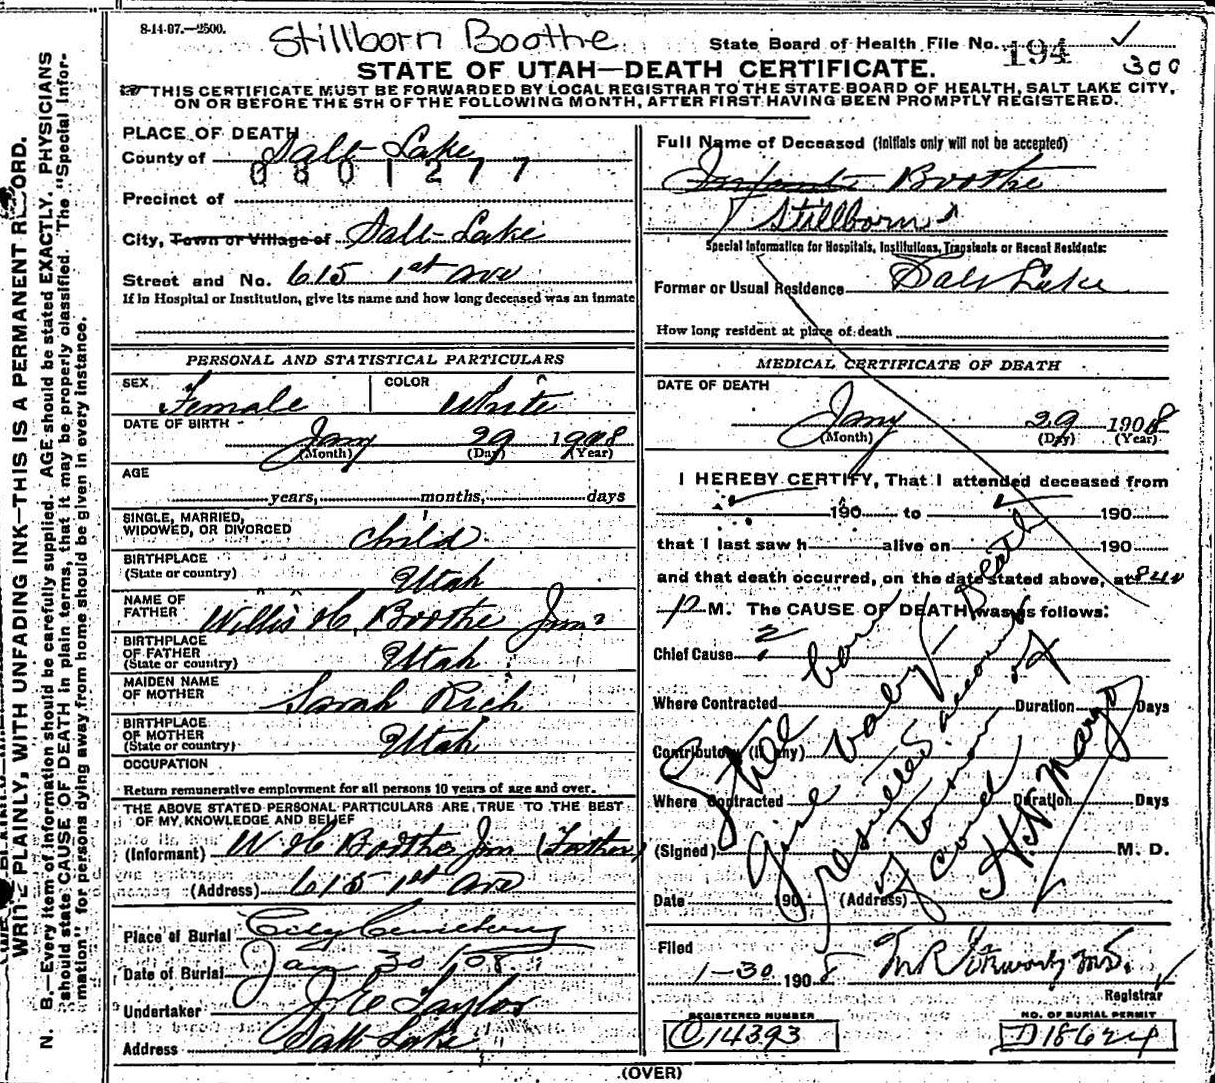 8-14-07.—2500.
Stillborn Boothe
State Board of Health File No. 194
300
STATE OF UTAH—DEATH CERTIFICATE.
THIS CERTIFICATE MUST BE FORWARDED BY LOCAL REGISTRAR TO THE STATE BOARD OF HEALTH, SALT LAKE CITY,
ON OR BEFORE THE 5TH OF THE FOLLOWING MONTH, AFTER FIRST HAVING BEEN PROMPTLY REGISTERED.
WRITE PLAINLY, WITH UNFADING INK—THIS IS A PERMANENT RECORD.
N. B.—Every item of information should be carefully supplied. AGE should be stated EXACTLY. PHYSICIANS
should state CAUSE OF DEATH in plain terms, that it may be properly classified. The "Special Infor-
mation" for persons dying away from home should be given in every instance.
PLACE OF DEATH
County of Salt Lake
0801277
Precinct of
City, Town or Village of Salt Lake
Street and No. 615 1st Ave
If in Hospital or Institution, give its name and how long deceased was an inmate
PERSONAL AND STATISTICAL PARTICULARS
SEX, Female COLOR White
DATE OF BIRTH Jany 29 1908
(Month) (Day) (Year)
AGE
years, months, days
SINGLE, MARRIED,
WIDOWED, OR DIVORCED Child
BIRTHPLACE
(State or country) Utah
NAME OF
FATHER Willis H. Boothe Jnr
BIRTHPLACE
OF FATHER
(State or country) Utah
MAIDEN NAME
OF MOTHER Sarah Rich
BIRTHPLACE
OF MOTHER
(State or country) Utah
OCCUPATION
Return remunerative employment for all persons 10 years of age and over.
THE ABOVE STATED PERSONAL PARTICULARS ARE TRUE TO THE BEST
OF MY KNOWLEDGE AND BELIEF
(Informant) W H Boothe Jnr (Father)
(Address) 615 1st Ave
Place of Burial City Cemetery
Date of Burial Jan 30 / 08
Undertaker J E Taylor
Address Salt Lake
Full Name of Deceased (Initials only will not be accepted)
Infante Boothe
Stillborn
Special Information for Hospitals, Institutions, Transients or Recent Residents:
Former or Usual Residence Salt Lake
How long resident at place of death
MEDICAL CERTIFICATE OF DEATH
DATE OF DEATH
Jany 29 1908
(Month) (Day) (Year)
I HEREBY CERTIFY, That I attended deceased from
190 to 190
that I last saw h alive on 190
and that death occurred, on the date stated above, at 840
P M. The CAUSE OF DEATH was as follows:
Chief Cause
Where Contracted Duration Days
Contributory (If any)
Where Contracted Duration Days
(Signed) M. D.
Date 190 (Address)
Still born
Girl baby— Death
resulted account
of torsion of
cord
Filed
1-30 1908
Registrar
REGISTERED NUMBER
C14393
NO. OF BURIAL PERMIT
D18624
(OVER)